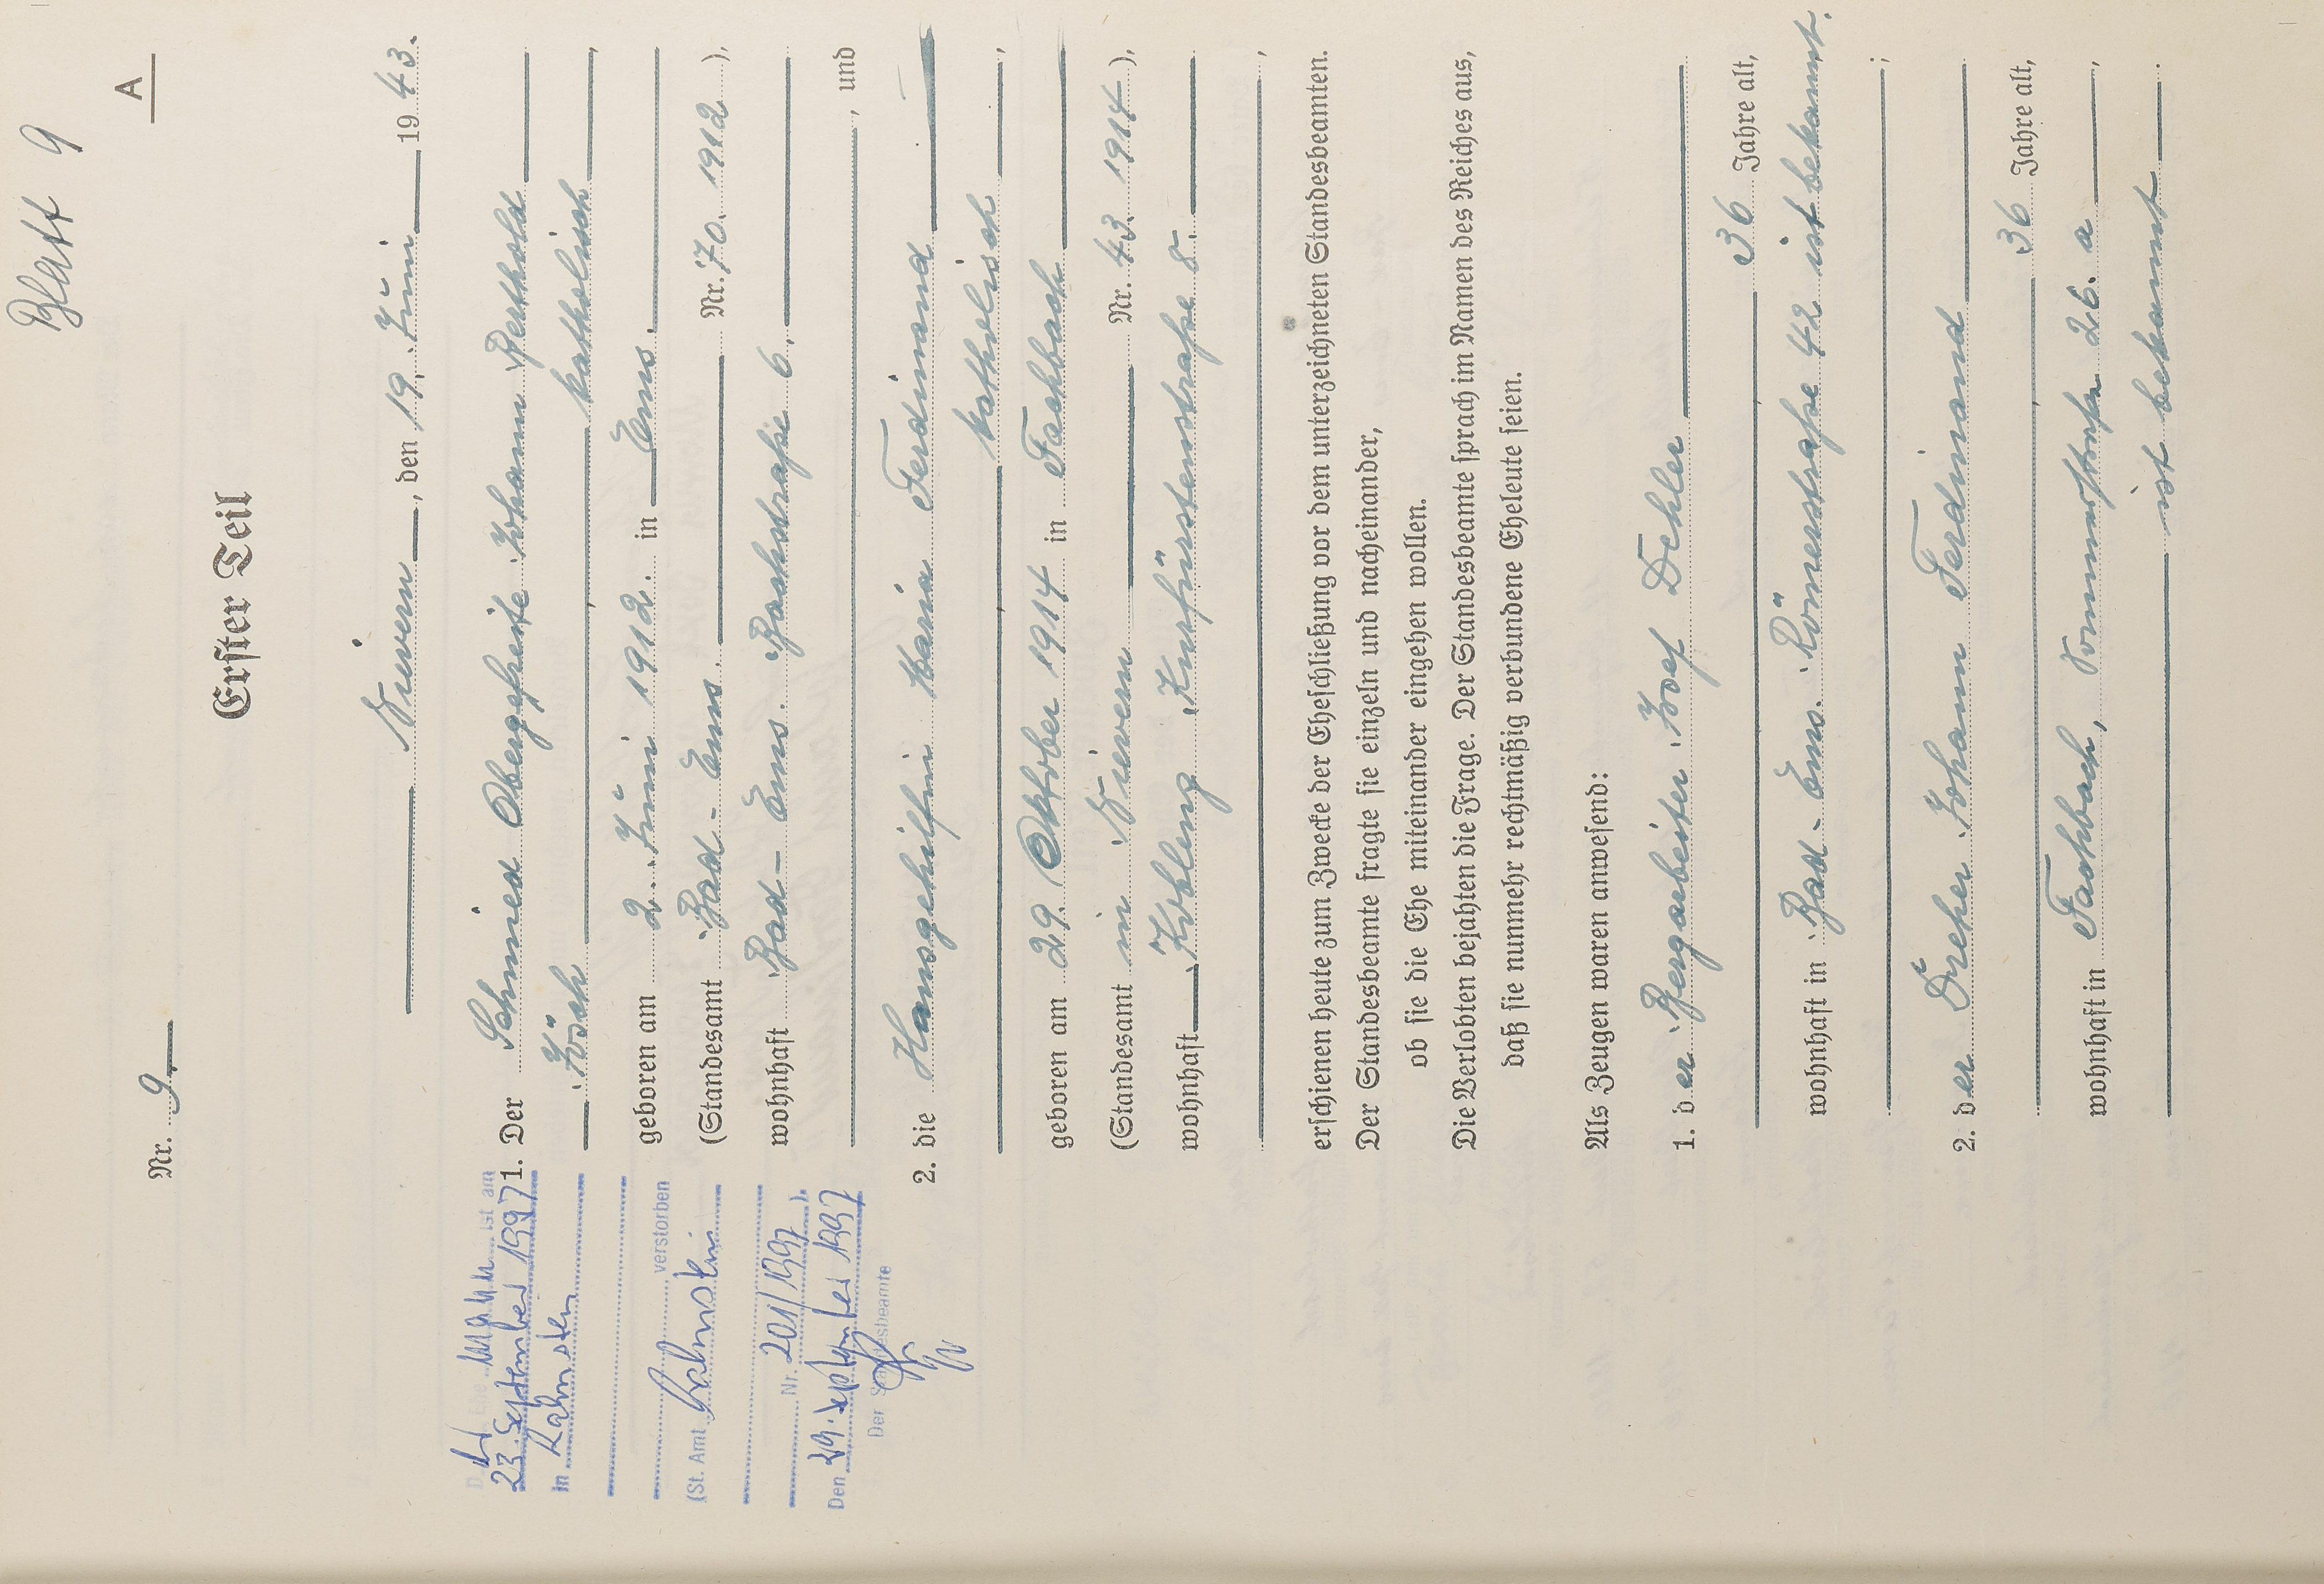 Blatt 9
A
Nr. 9
Erster Teil
Nievern, den 19. Juni 1943.
1. Der Schmied Obergefreite Johann Berthold
Jösch, katholisch,
geboren am 2. Juni 1912. in Ems.
(Standesamt Bad-Ems. Nr. 70. 1912),
wohnhaft Bad-Ems. Bachstraße 6.
, und
2. die Hausgehilfin Maria Ferdinand
, katholisch,
geboren am 29. Oktober 1914 in Fachbach
(Standesamt in Nievern Nr. 43. 1914),
wohnhaft Koblenz Kurfürstenstraße 8.
,
erschienen heute zum Zwecke der Eheschließung vor dem unterzeichneten Standesbeamten.
Der Standesbeamte fragte sie einzeln und nacheinander,
ob sie die Ehe miteinander eingehen wollen.
Die Verlobten bejahten die Frage. Der Standesbeamte sprach im Namen des Reiches aus,
daß sie nunmehr rechtmäßig verbundene Eheleute seien.
Als Zeugen waren anwesend:
1. der Bergarbeiter Josef Dehler
, 36 Jahre alt,
wohnhaft in Bad-Ems. Römerstraße 42 ist bekannt.
;
2. der Dreher Johann Ferdinand
, 36 Jahre alt,
wohnhaft in Fachbach, 26. a,
ist bekannt.
Der Ehemann ist am
23. September 1997
in Lahnstein
verstorben
(St. Amt Lahnstein
Nr. 201/1997).
Den 29. September 1997
Der Standesbeamte